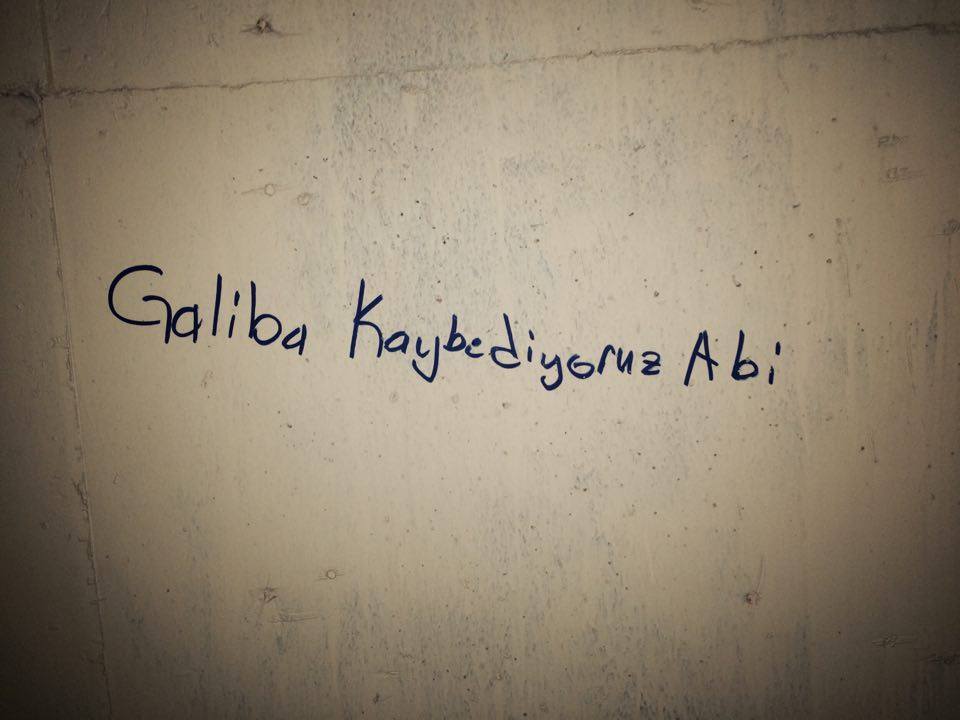 Galiba Kaybediyoruz Abi